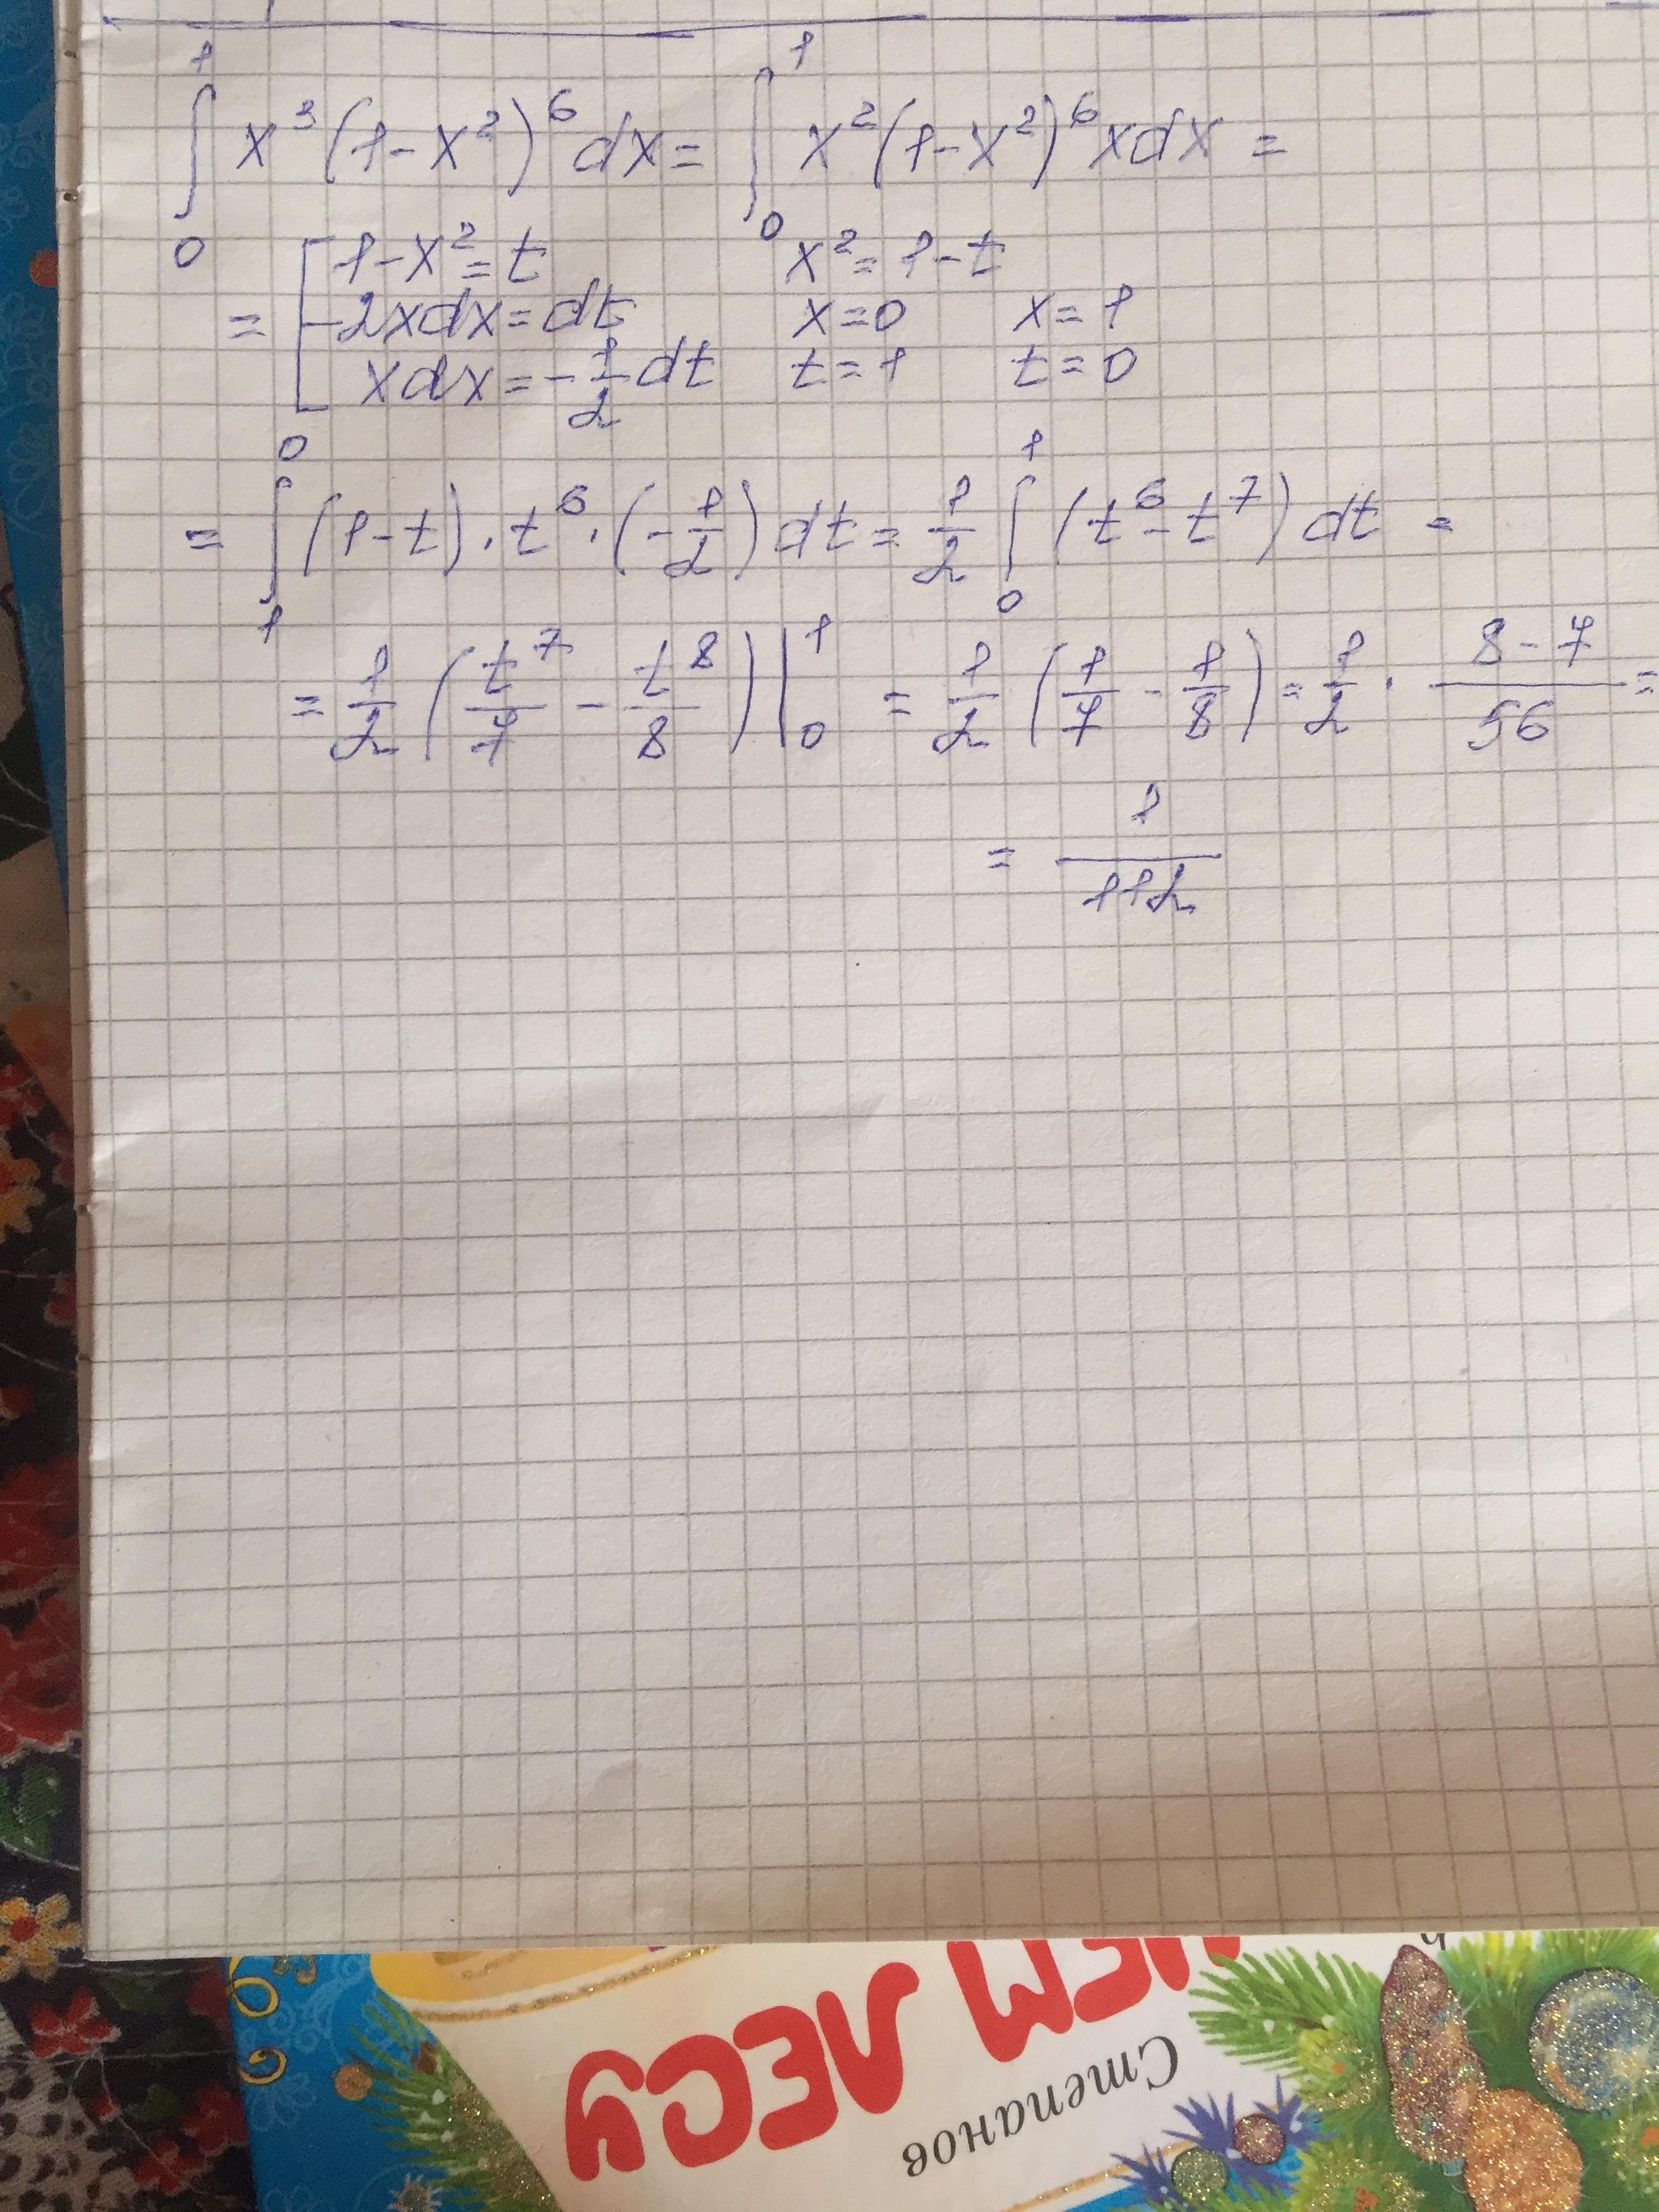 ∫₀¹ x³(1-x²)⁶dx = ∫₀¹ x²(1-x²)⁶xdx =
= [1-x² = t x² = 1-t
-2xdx = dt x=0 x=1
xdx = -1/2 dt t=1 t=0
= ∫₁⁰ (1-t)·t⁶·(-1/2)dt = 1/2 ∫₀¹ (t⁶-t⁷)dt =
= 1/2 (t⁷/7 - t⁸/8)|₀¹ = 1/2 (1/7 - 1/8) = 1/2 · (8-7)/56 =
= 1/112
Степанов
ЛЕСУ